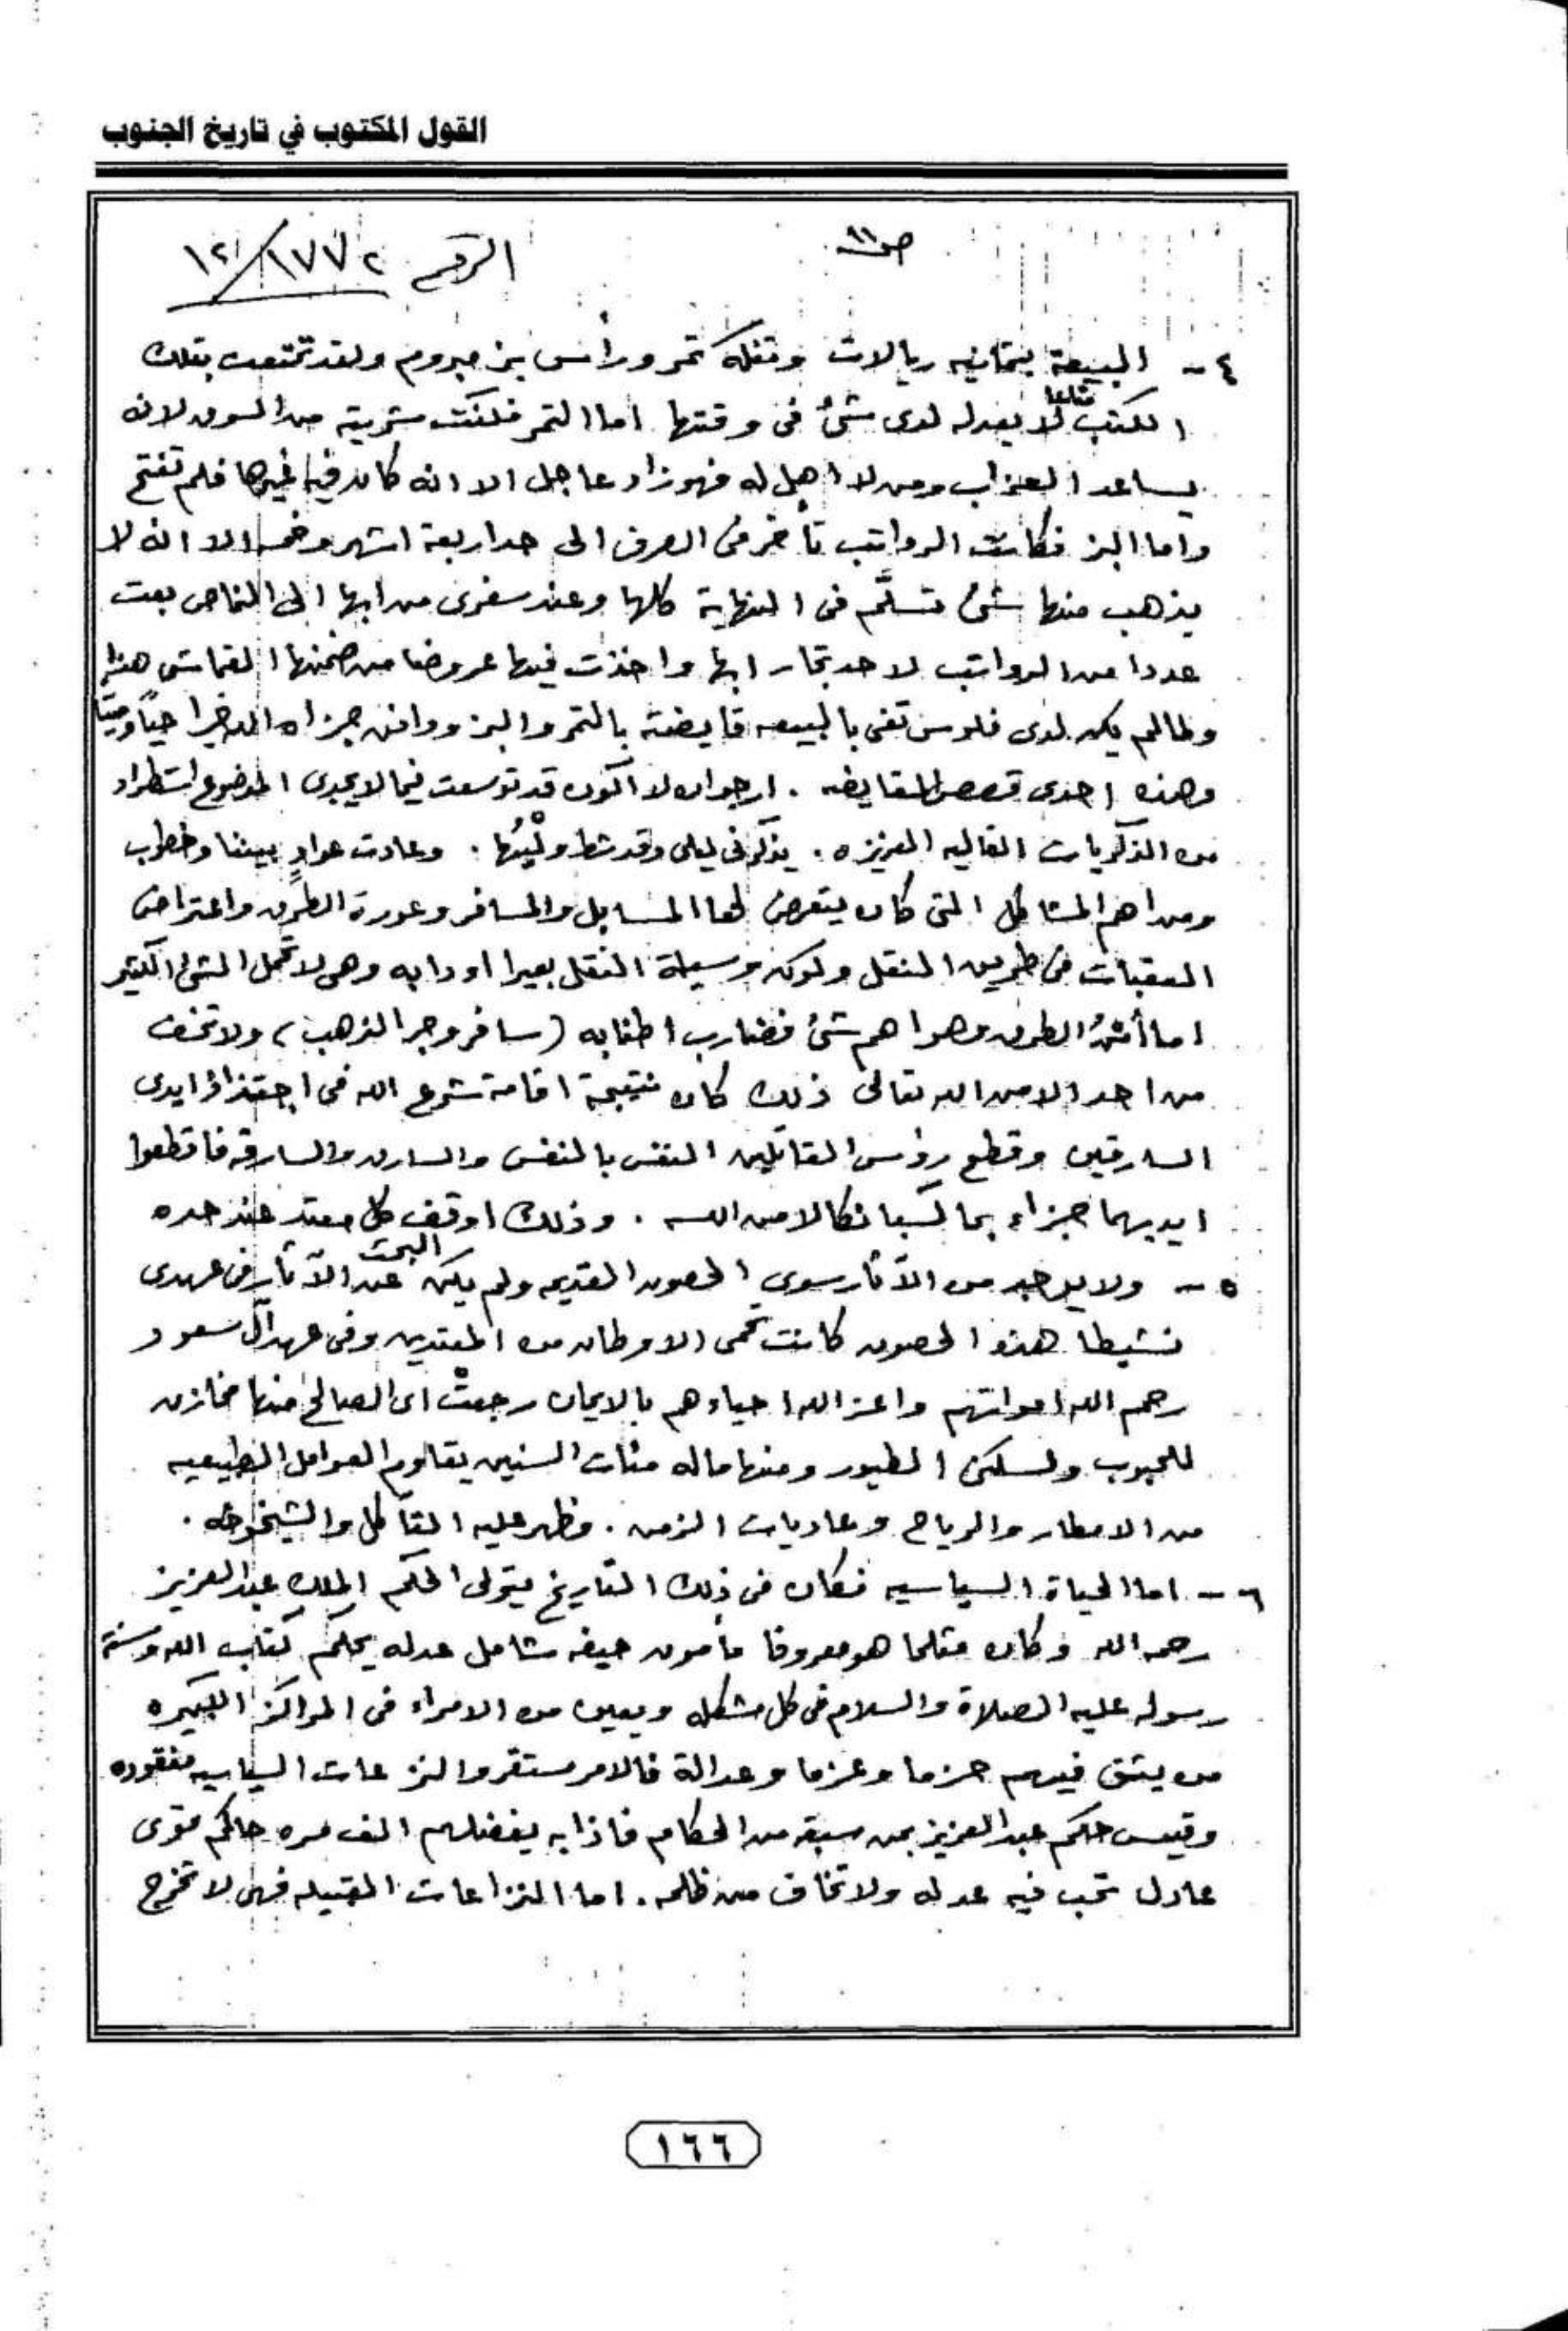 القول المكتوب في تاريخ الجنوب
ص١١
الرقم ١٧٧٢/١٢
٤ - البيعة بثمانيه ريالات وتنكه تمر ورأس بز مبروم ولقد تمتعت بتلك
الكتب متاعا لا يعدله لدى شئ فى وقتها اما التمر فكنت مشريته من السوق لانه
يساعد العزاب ومن لا اهل له فهو زاد عاجل الا انه كان فيه غيرها فلم تفتح
واما البز فكانت الرواتب تأخر فى الصرف الى حد اربعة اشهر وخمسه الا انه لا
يذهب منها شئ تسلَّم فى النهاية كلها وعند سفرى من ابها الى النماص بعت
عددا من الرواتب لاحد تجار ابها واخذت فيها عروضا من ضمنها القماش هذا
وطالما لم يكن لدى فلوس تفى بالبيعه قايضته بالتمر والبز ووافق جزاه الله خيرا حياً وميتا
وهذه احدى قصص المقايضه . ارجو ان لا اكون قد توسعت فيما لا يجدى الموضوع استطراد
من الذكريات الغاليه العزيزه . يذكرنى ليلى وقد شط ولْيُها . وعادت عوادٍ بيننا وخطوب
ومن اهم المشاكل التى كان يتعرض لها السابل والمسافر وعورة الطرق واعتراض
العقبات فى طريق التنقل ولكون وسيلة النقل بعيرا او دابه وهى لا تحمل الشئ الكثير
اما أمْنُ الطرق وهو اهم شئ فضارب اطنابه (سافر وجر الذهب) ولا تخف
من احد الا من الله تعالى ذلك كان نتيجة اقامة شرع الله فى اجتذاذ ايدى
السارقين وقطع رؤس القاتلين النفس بالنفس والسارق والسارقه فاقطعوا
ايديهما جزاء بما كسبا نكالا من الله . وذلك اوقف كل معتد عند حده
٥ - ولا يوجد من الآثار سوى الحصون القديمه ولم يكن البحث عن الآثار فى عهدى
نشيطا هذه الحصون كانت تحمى الاوطان من المعتدين وفى عهد آل سعود
رحم الله امواتهم واعز الله احياءهم بالايمان رجعتْ اى الصالح منها مخازن
للحبوب ولسكنى الطيور ومنها ماله مئات السنين يقاوم العوامل الطبيعيه
من الامطار والرياح وعاديات الزمن . وظهر عليه التآكل والشيخوخه .
٦ - اما الحياة السياسيه فكان فى ذلك التاريخ يتولى الحكم الملك عبد العزيز
رحمه الله وكان مثلما هو معروفا مأمون حيفه شامل عدله يحكم كتاب الله وسنة
رسوله عليه الصلاة والسلام فى كل مشكله ويعين من الامراء فى المراكز الكبيره
من يتق فيهم حزما وعزما وعدالة فالامر مستقر والنزعات السياسيه مفقوده
وقيس حكم عبد العزيز بمن سبقه من الحكام فاذا به يفضلهم الف مره حاكم قوى
عادل تحب فيه عدله ولا تخاف من ظلمه . اما النزاعات القبيله فهى لا تخرج
١٦٦